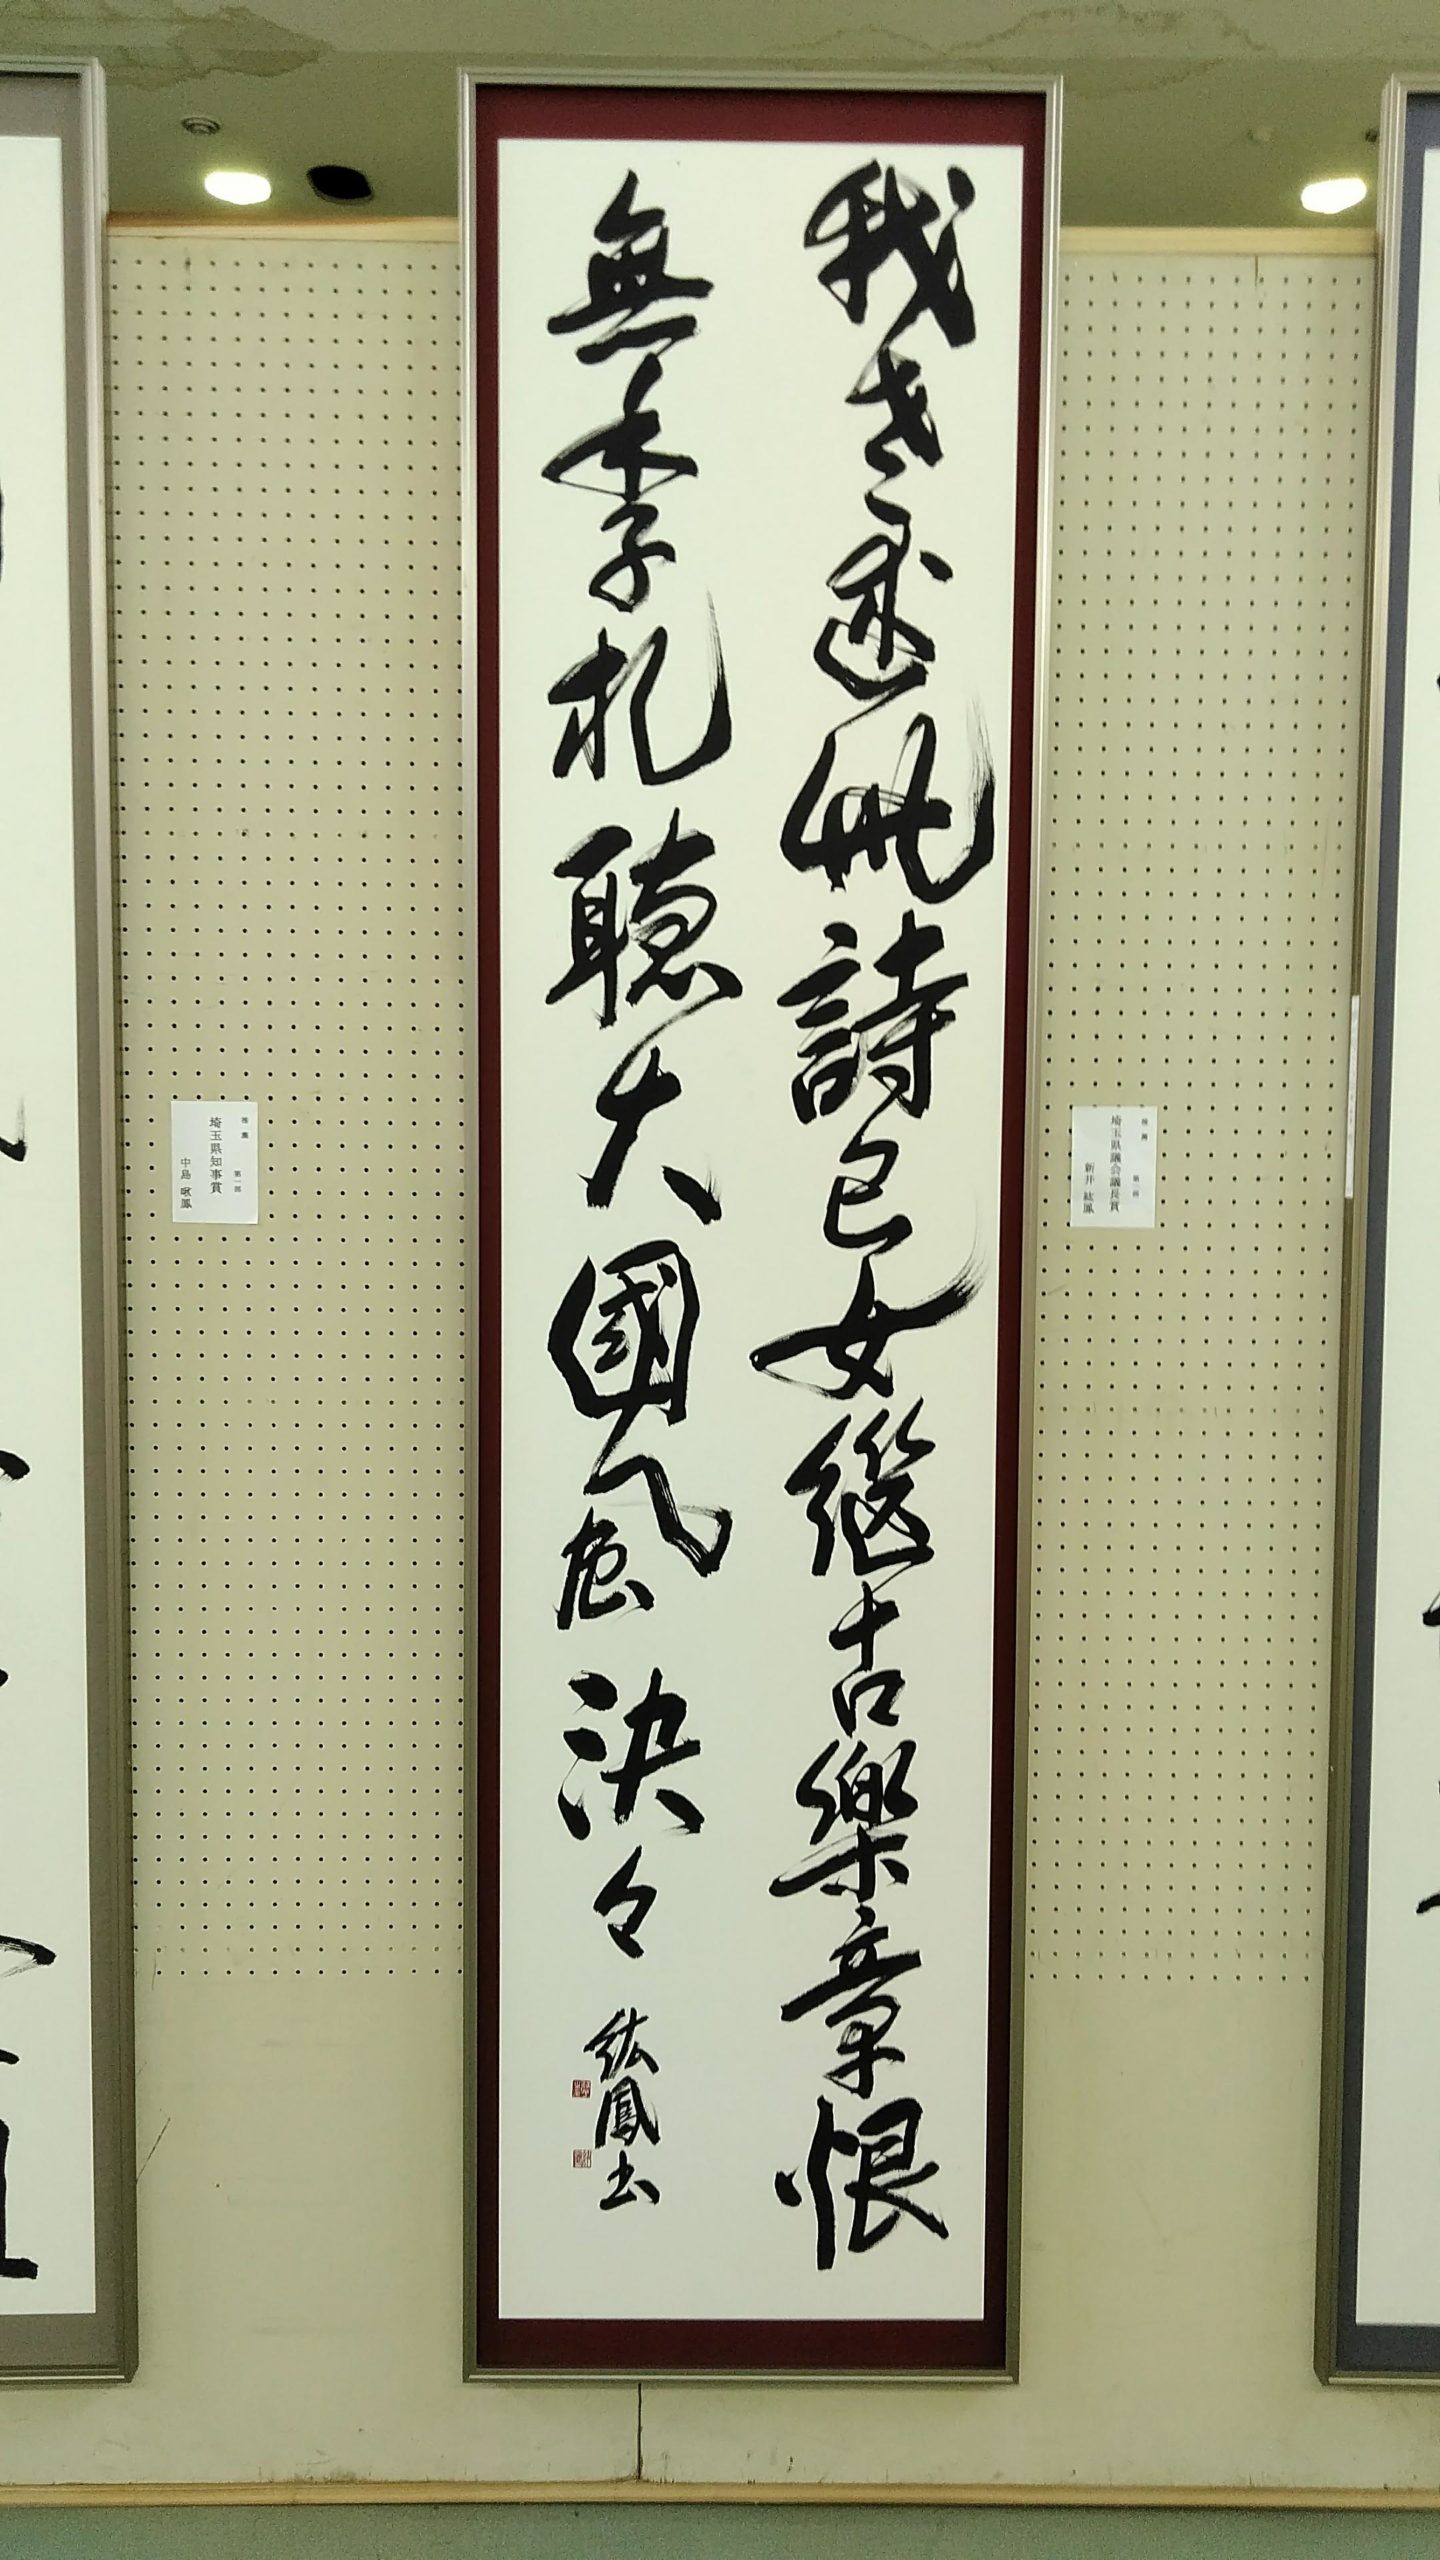 我老述此詩妄継古樂章恨
無季札聴大國風泱々
紘鳳書
推薦 第一部
埼玉県議会議長賞
新井 紘鳳
推薦 第一部
埼玉県知事賞
中島